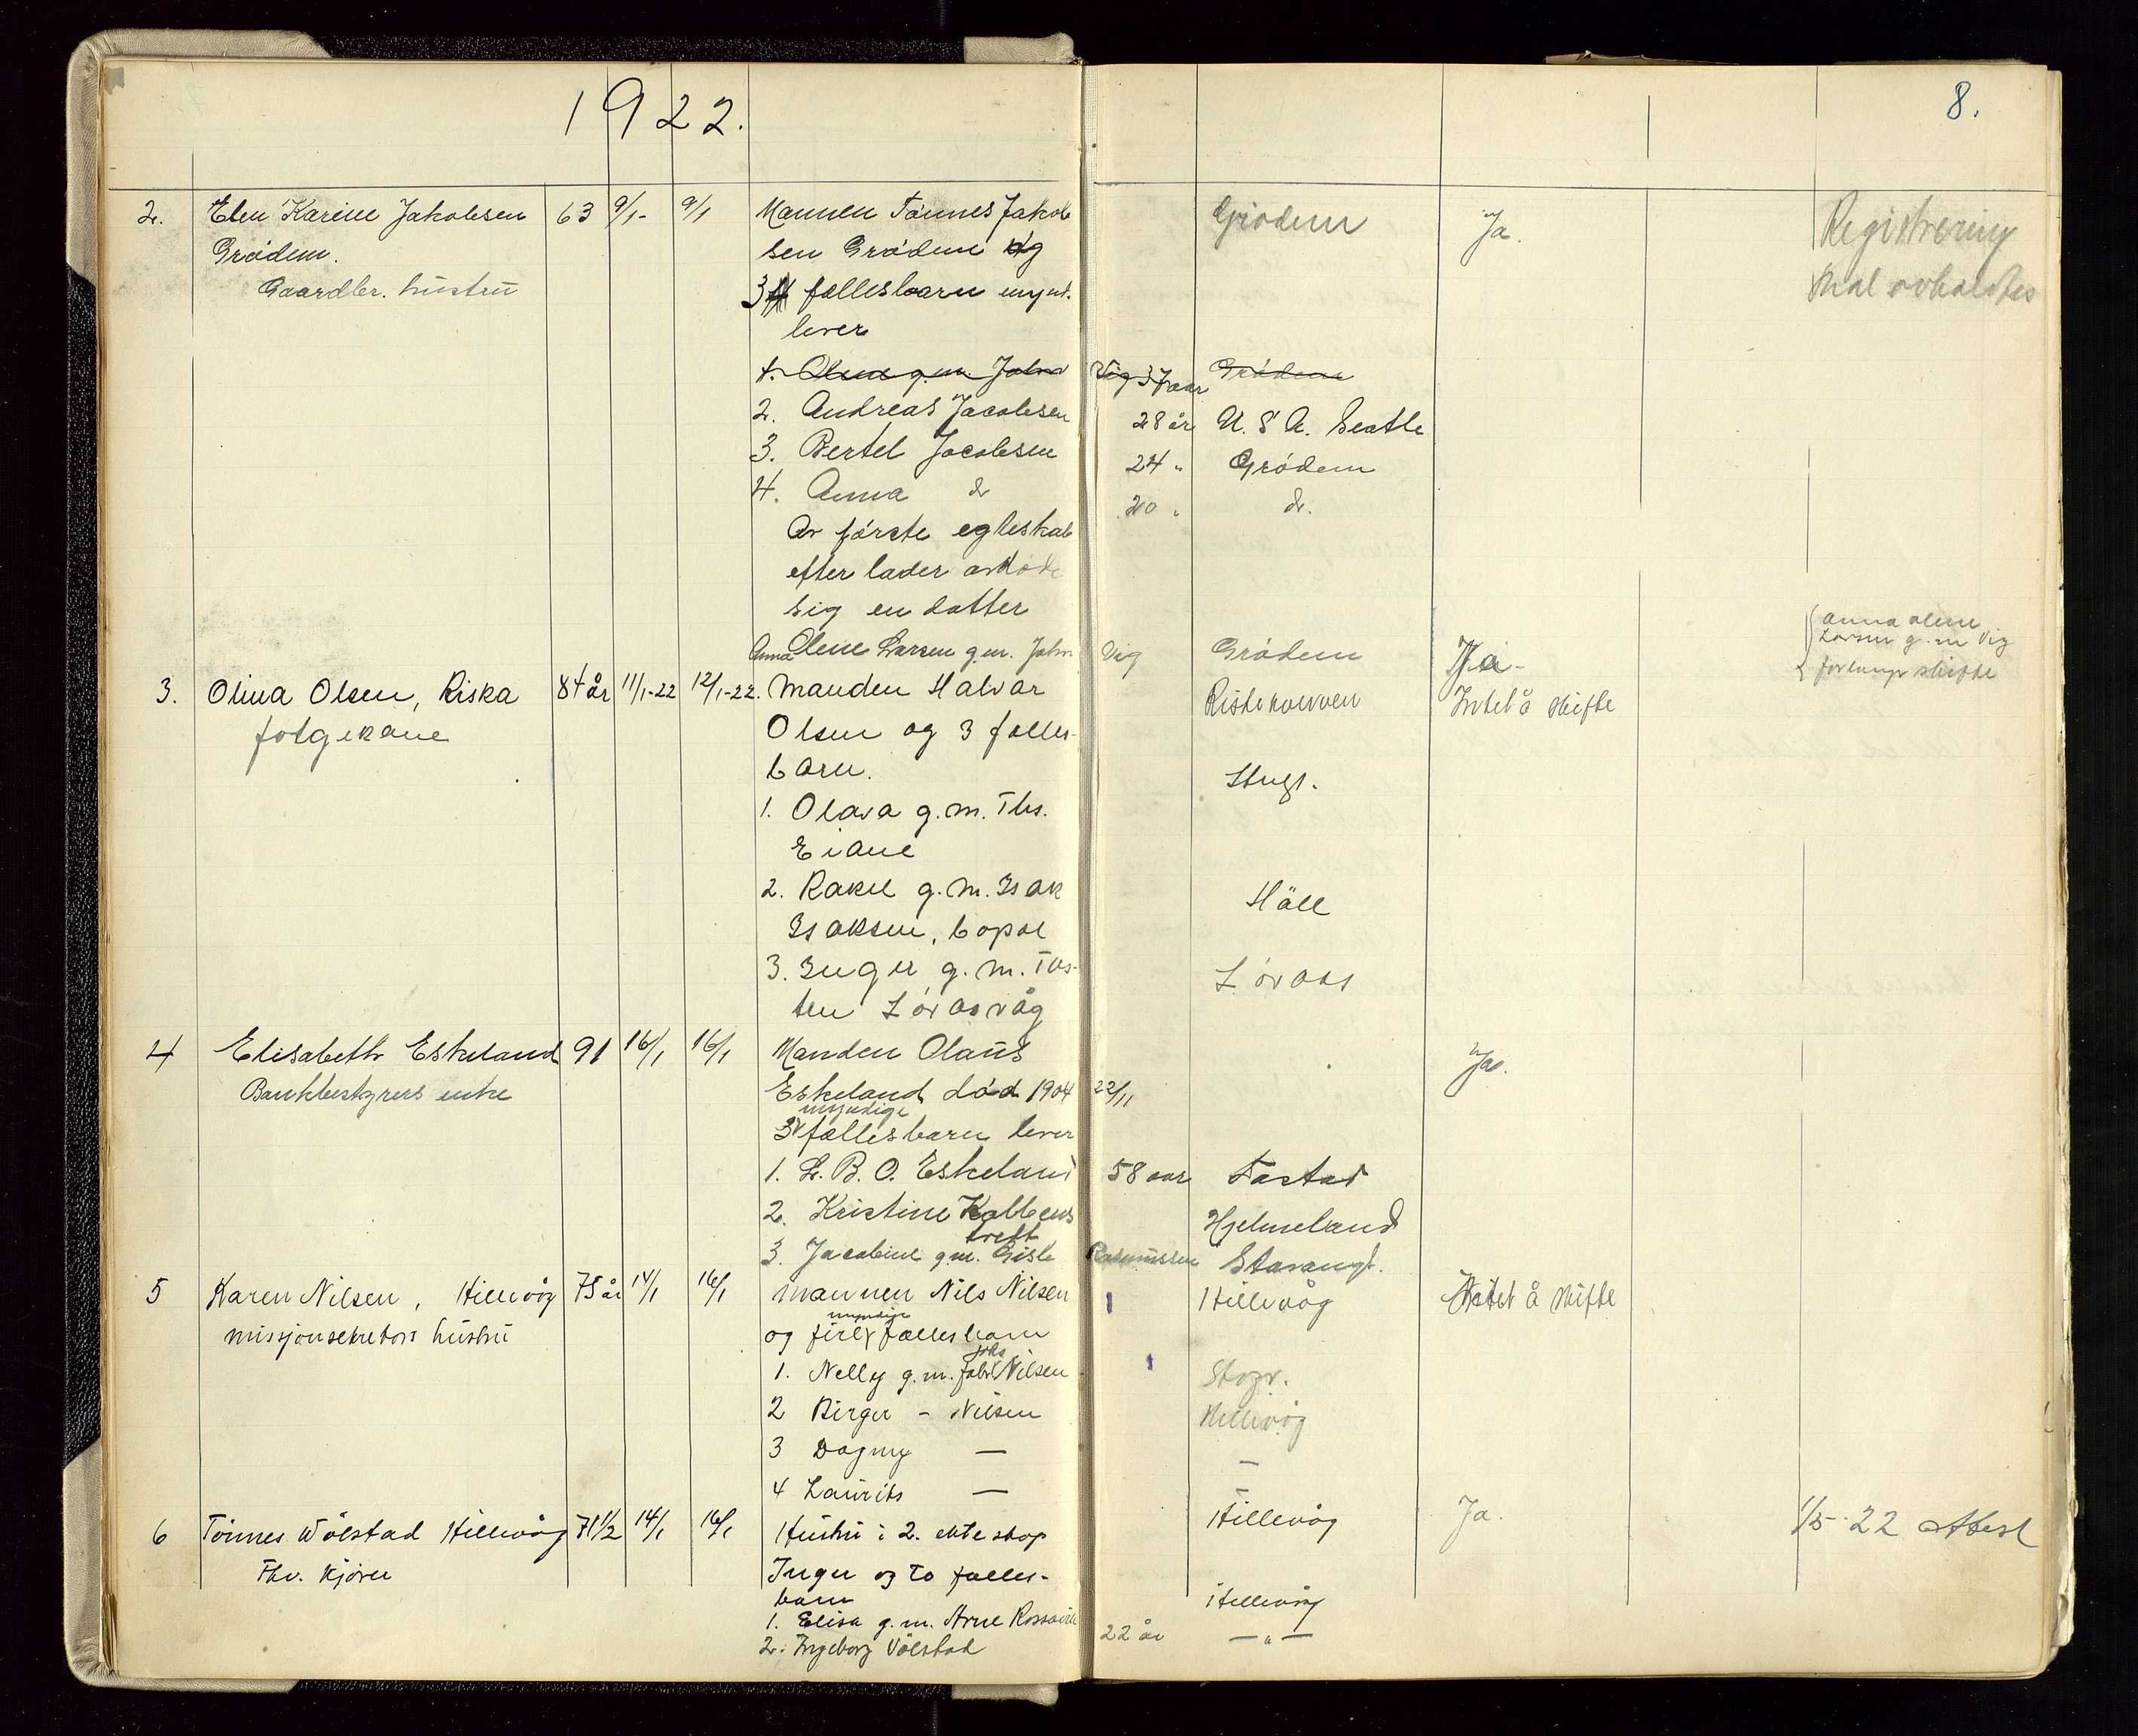 1922.
8.
2. Elen Karine Jakobsen 63 9/1- 9/1 Mannen Tønnes Jakob Grödem Ja. Registrering
Grödem. sen Grödem og skal avholdes
Gaardbr. hustru 3 fællesbarn mynd.
lever
1. Olene g.m. John Vig 37 aar Grödem
2. Andreas Jacobsen 28 år U.S.A. Seatle
3. Bertel Jacobsen 24 " Grödem
4. Anna do 20 " do.
Av förste egteskab
efter lader avdøde
sig en datter
Anna Olene Larsen g.m. John Vig Grödem Ja - Anna Olene
Larsen g.m. Vig
forlanger skifte
3. Olina Olsen, Riska 84 år 11/1-22 12/1-22. Manden Halvar Intet å skifte
fotgekone Olsen og 3 felles-
barn. Stvgr.
1. Olava g.m. Ths.
Eiane
2. Rakel g.m. Isak Häll
Isaksen, bopæl
3. Inger g.m. Tos- Löraas
ten Löraasvåg
4 Elisabeth Eskeland 91 16/1 16/1 Manden Olaus Ja.
Bankbestyrers enke Eskeland død 1904 22/11
myndige
3 fællesbarn lever
1. L. B. O. Eskeland 58 aar Tastad
2. Kristine Kolbens Hjelmeland
tvedt
3. Jacobine g.m. Gisle Rasmussen Stavangr.
5 Karen Nilsen, Hillevåg 75 år 14/1 16/1 Mannen Nils Nilsen Hillevåg Intet å skifte
missjonsekretærs hustru myndige
og fire fællesbarn
1. Nelly g.m. Johs Nilsen Stvgr.
2 Birger - Nilsen Hillevåg
3 Dagny —
4 Laurits —
6 Tönnes Wölstad Hillevåg 71 1/2 14/1 16/1 Hustru i 2. ekteskap Hillevåg Ja. 1/5-22 Attest
Fhv. kjører Inger og to felles-
barn Hillevåg
1. Elisa g.m. Arne
2. Ingeborg Völstad 22 år — " —